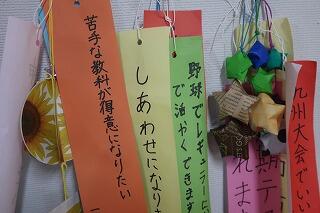 苦手な教科が得意になりたい
しあわせになりま
野球でレギュラーに
で活やくできます
れま
期テ
九州大会でいい